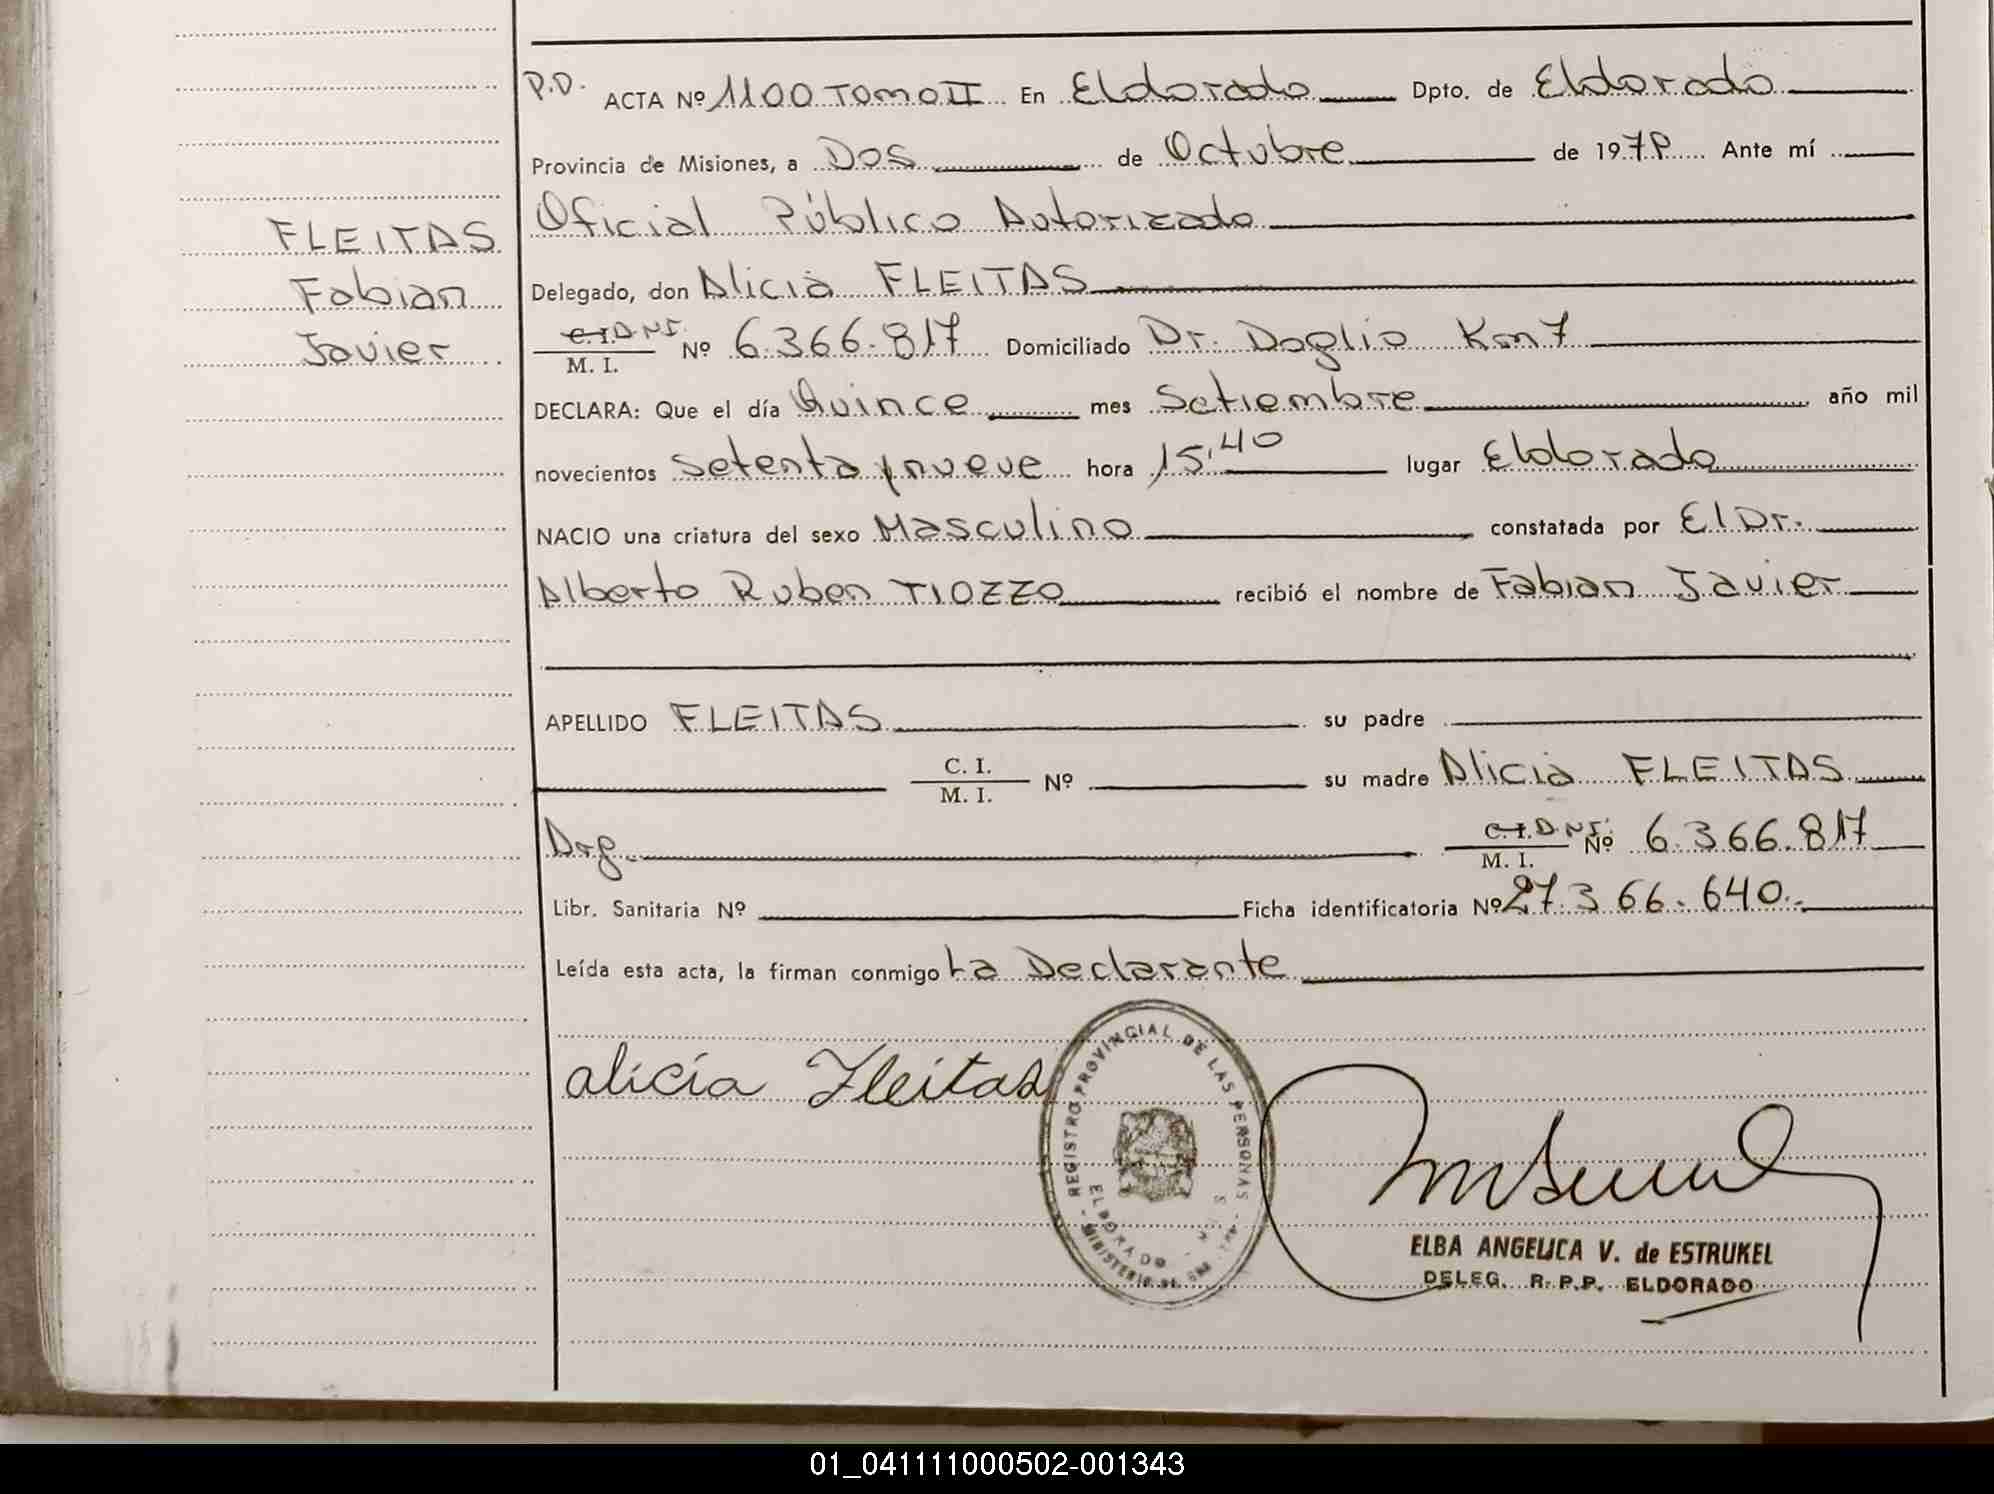 P.D. ACTA Nº 1100 TOMO II En Eldorado Dpto. de Eldorado
Provincia de Misiones, a Dos de Octubre de 1979 Ante mí
Oficial Público Autorizado
FLEITAS
Fabian
Javier
Delegado, don Alicia FLEITAS
C.I. DNI. Nº 6.366.817 Domiciliado Dr. Doglio Km 7
M. I.
DECLARA: Que el día Quince mes Setiembre año mil
novecientos setenta y nueve hora 15,40 lugar Eldorado
NACIO una criatura del sexo Masculino constatada por El Dr.
Alberto Ruben TIOZZO recibió el nombre de Fabian Javier
APELLIDO FLEITAS su padre
C. I. Nº su madre Alicia FLEITAS
M. I.
Arg. C.I. DNI. Nº 6.366.817
M. I.
Libr. Sanitaria Nº Ficha identificatoria Nº 27.366.640.-
Leída esta acta, la firman conmigo La Declarante
alicia Fleitas
REGISTRO PROVINCIAL DE LAS PERSONAS
ELDORADO
ELBA ANGELICA V. de ESTRUKEL
DELEG. R.P.P. ELDORADO
01_041111000502-001343